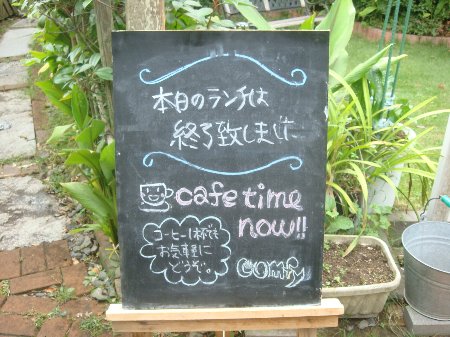 本日のランチは
終了致しました
cafe time
now!!
コーヒー1杯でも
お気軽に
どうぞ。
comfy